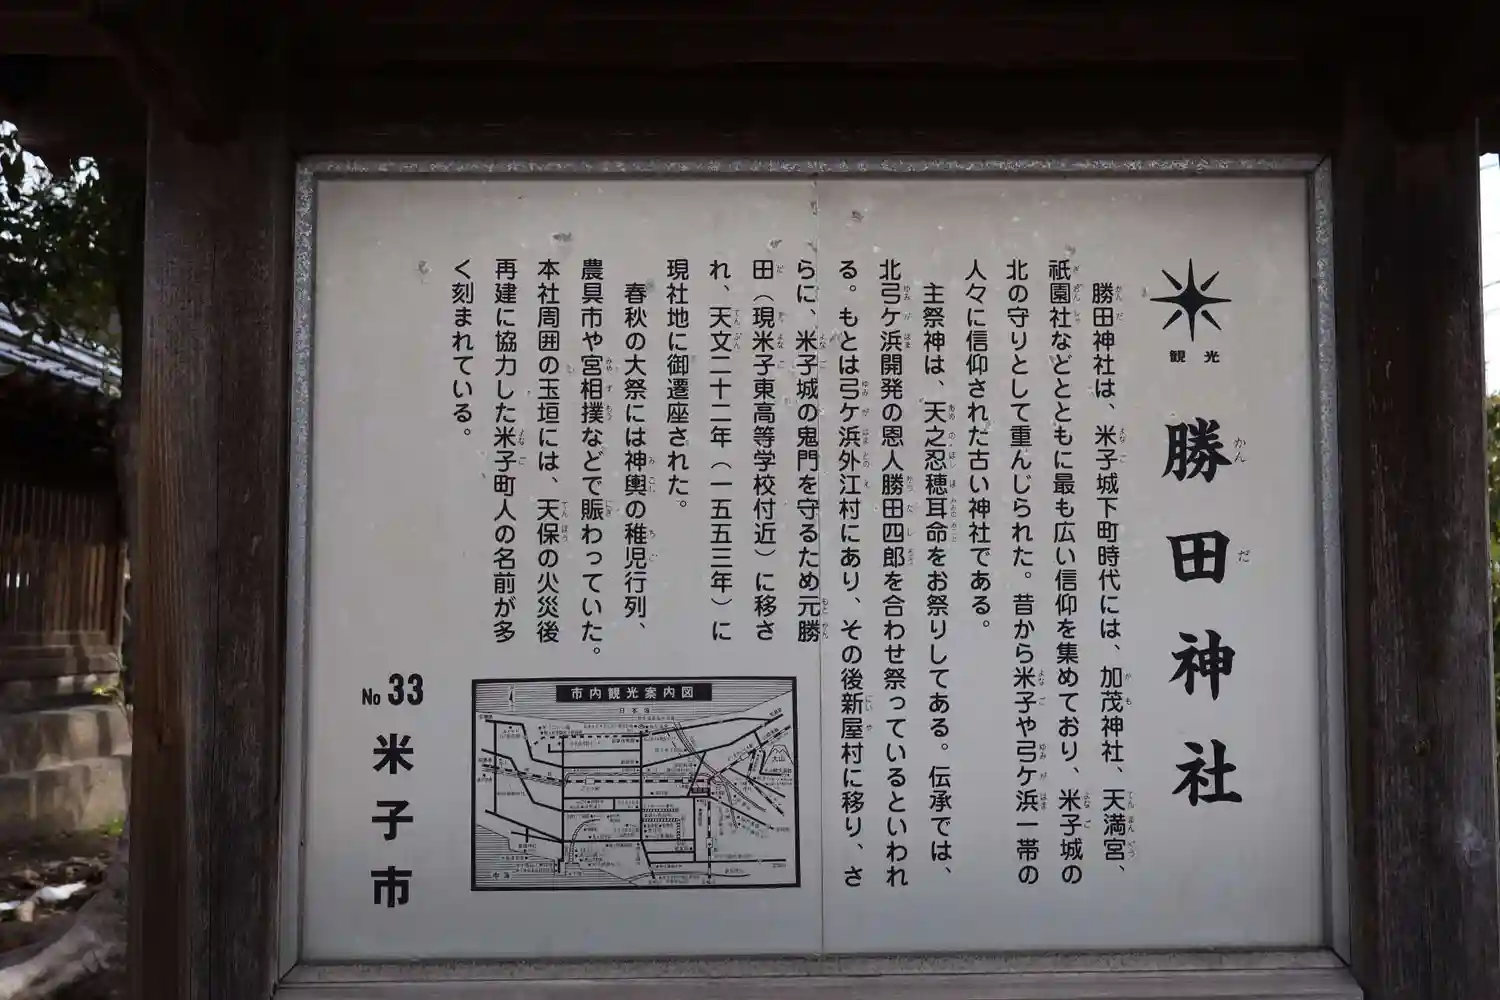 観光
勝田神社
勝田神社は、米子城下町時代には、加茂神社、天満宮、
祇園社などとともに最も広い信仰を集めており、米子城の
北の守りとして重んじられた。昔から米子や弓ケ浜一帯の
人々に信仰された古い神社である。
主祭神は、天之忍穂耳命をお祭りしてある。伝承では、
北弓ケ浜開発の恩人勝田四郎を合わせ祭っているといわれ
る。もとは弓ケ浜外江村にあり、その後新屋村に移り、さ
らに、米子城の鬼門を守るため元勝
田（現米子東高等学校付近）に移さ
れ、天文二十二年（一五五三年）に
現社地に御遷座された。
春秋の大祭には神輿の稚児行列、
農具市や宮相撲などで賑わっていた。
本社周囲の玉垣には、天保の火災後
再建に協力した米子町人の名前が多
く刻まれている。
市内観光案内図
日本海
大山
中海
No 33
米子市